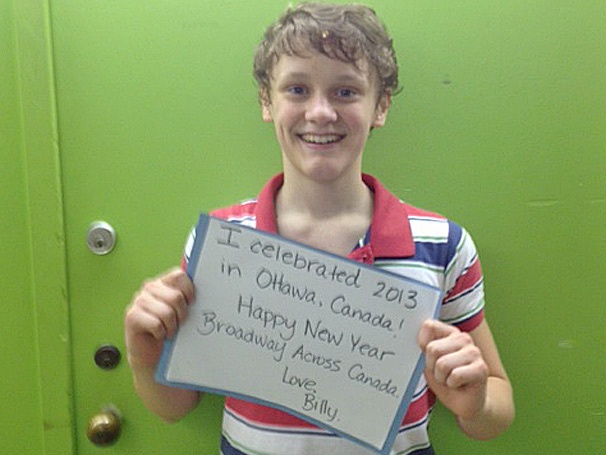 I celebrated 2013
in Ottawa, Canada!
Happy New Year
Broadway Across Canada.
Love,
Billy.